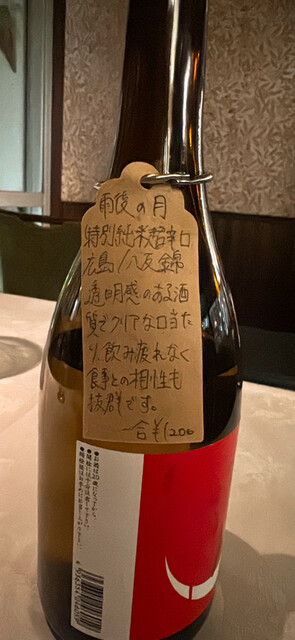 雨後の月
特別純米超辛口
広島/八反錦
透明感のある酒
質でクリアな口当た
り、飲み疲れなく
食事との相性も
抜群です。
一合¥1200
●お酒は20歳になってから。